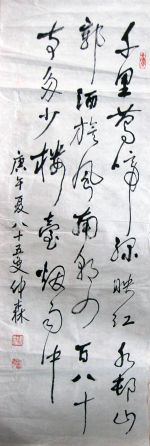 千里鶯啼綠映紅水邨山
郭酒旗風南朝四百八十
寺多少樓臺烟雨中
庚午夏八十五叟仲森